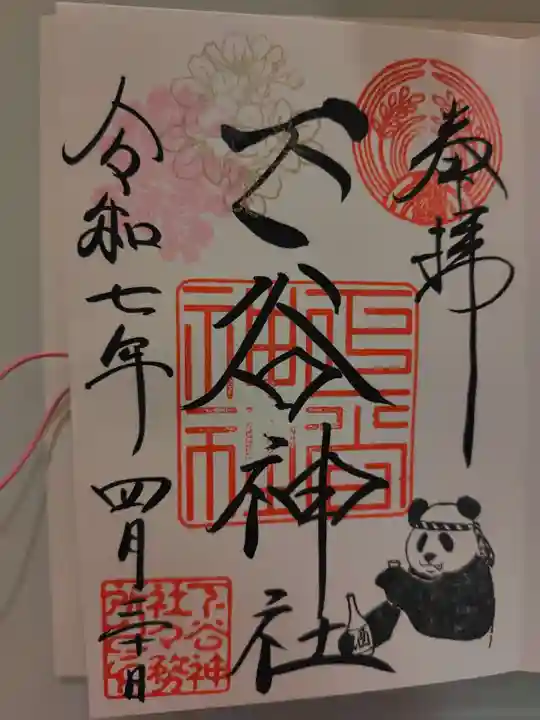 奉拝
下谷神社
令和七年四月二十日
下谷神社
下谷神
社
酒